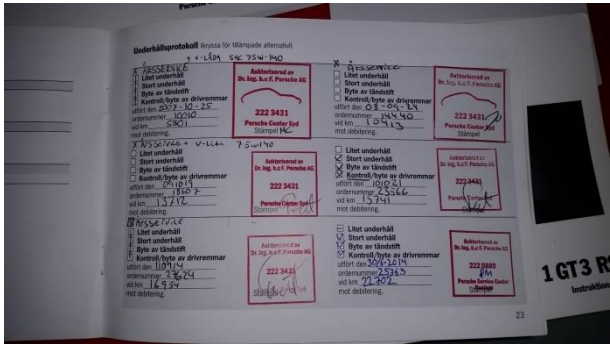 Underhållsprotokoll (kryssa för tillämpade alternativ)
X ÅRSSERVICE
Litet underhåll
Stort underhåll
Byte av tändstift
Kontroll/byte av drivremmar
utfört den 2007-10-25
ordernummer 10010
vid km 5801
mot debitering.
Auktoriserad av
Dr. Ing. h.c F. Porsche AG
222 3431
Porsche Center Syd
Stämpel
X Årsservice
Litet underhåll
Stort underhåll
Byte av tändstift
Kontroll/byte av drivremmar
utfört den
ordernummer 14440
vid km 10413
mot debitering.
Auktoriserad av
Dr. Ing. h.c F. Porsche AG
222 3431
Porsche Center Syd
Stämpel
X Årsservice + 75w140
Litet underhåll
Stort underhåll
Byte av tändstift
Kontroll/byte av drivremmar
utfört den 091019
ordernummer 18607
vid km 13712
mot debitering.
Auktoriserad av
Dr. Ing. h.c F. Porsche AG
222 3431
Porsche Center Syd
Stämpel
Litet underhåll
Stort underhåll
Byte av tändstift
Kontroll/byte av drivremmar
utfört den 101021
ordernummer 23566
vid km 15741
mot debitering.
Auktoriserad av
Dr. Ing. h.c F. Porsche AG
222 3431
Porsche Center
Årsservice
Litet underhåll
Stort underhåll
Byte av tändstift
Kontroll/byte av drivremmar
utfört den 110914
ordernummer 27624
vid km 16954
mot debitering.
Auktoriserad av
Dr. Ing. h.c F. Porsche AG
222 3431
Syd
Stämpel
Litet underhåll
Stort underhåll
Byte av tändstift
Kontroll/byte av drivremmar
utfört den 30/6-2014
ordernummer 25363
vid km 22702
mot debitering.
Auktoriserad av
Dr. Ing. h.c F. Porsche AG
222 0880
PM
Porsche Service Center
Stämpel
23
1 GT3 RS